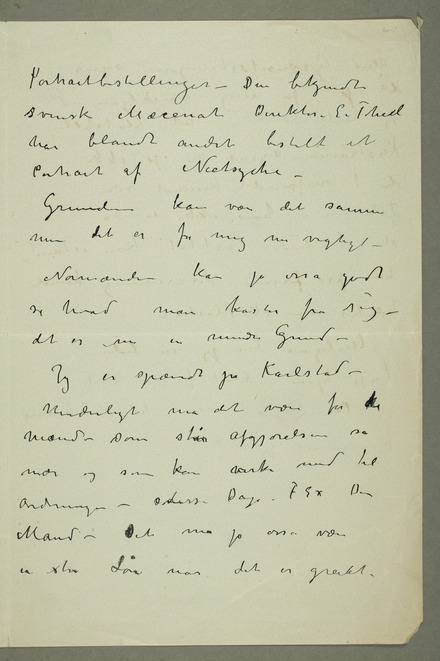 Portraitbestillinger – Den bekjendte
svensk Mæcenat Direktør E. Thiel
har blandt andet bestilt et
Portrait af Nietsche –
Grunden kan være det samme
men det er for mig nu vigtigt –
Normænden kan jo også godt
se hvad man kaster fra sig –
det er nu en mindre Grund –
Jeg er spændt på Karlstad –
Underligt må det være for de
mænd som står afgjørelsen så
nær og som kan virke med til
ordningen – disse Dage. F Ex Din
Mand – Det må jo også være
en stor Lön når det er greit.